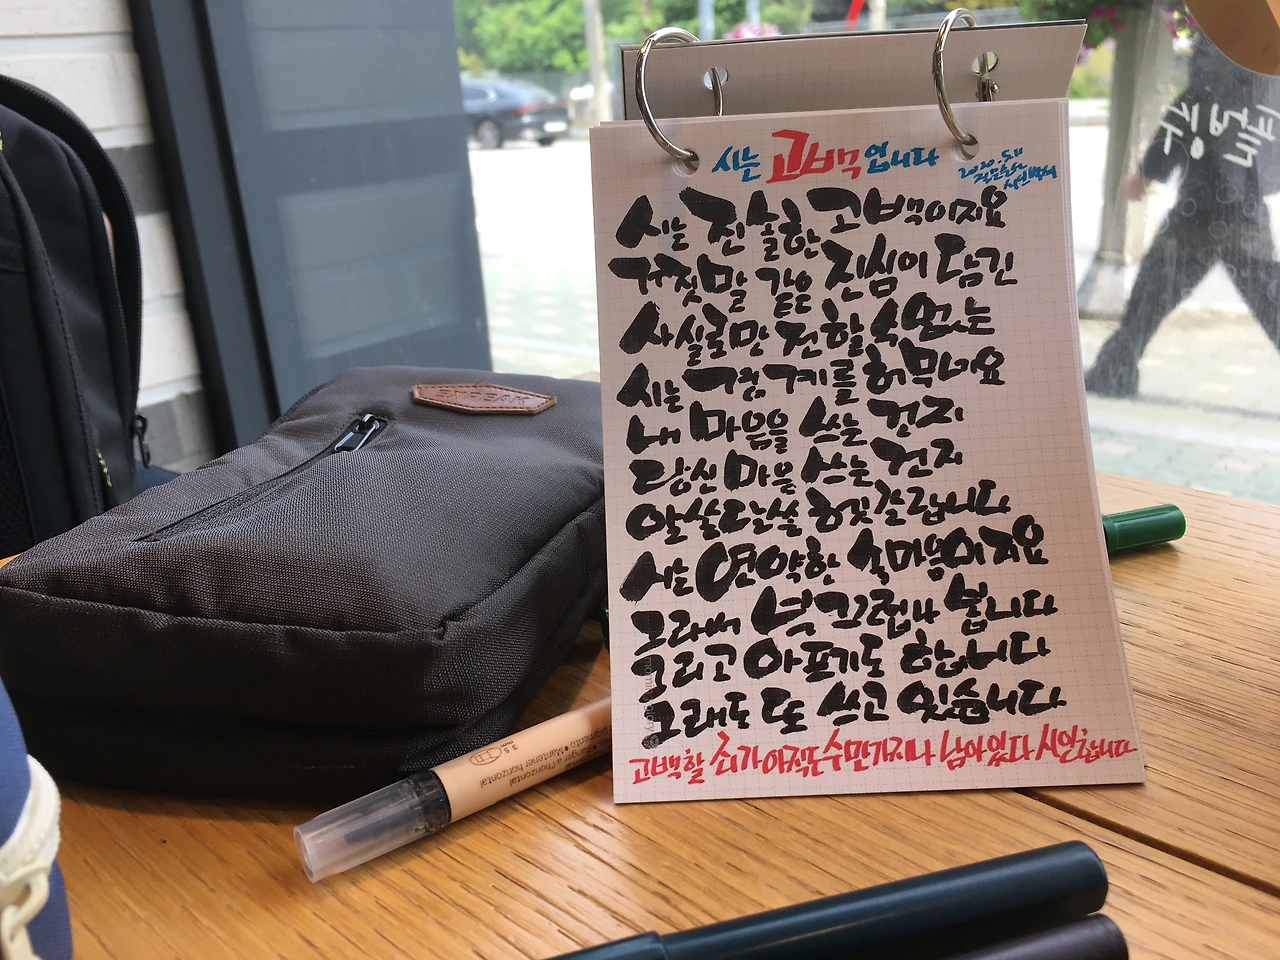 시는 고백입니다
시는 진솔한 고백이지요
거짓말 같은 진심이 담긴
사실로만 전할 수 없는
시는 경계를 허무네요
내 마음을 쓰는 건지
당신 마음 쓰는 건지
알쏭달쏭 헛갈립니다
시는 연약한 속마음이지요
그래서 넉 그럽나 봅니다
그리고 아프기도 합니다
그래도 또 쓰고 있습니다
고백할 죄가 아직은 수만가지나 남아있다 시인합니다
EXPEAK
3.5
Mantener horizontal